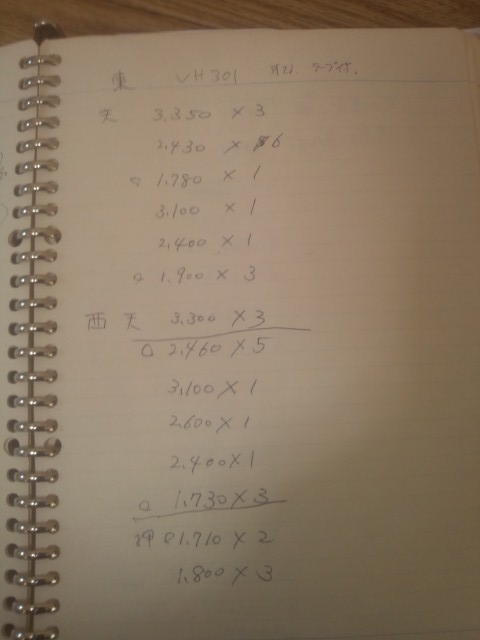 東 VH301
天 3.350 × 3
2.430 × 6
□ 1.780 × 1
3.100 × 1
2.400 × 1
□ 1.900 × 3
西 天 3.300 × 3
□ 2.460 × 5
3.100 × 1
2.600 × 1
2.400 × 1
□ 1.730 × 3
押 1.710 × 2
1.800 × 3